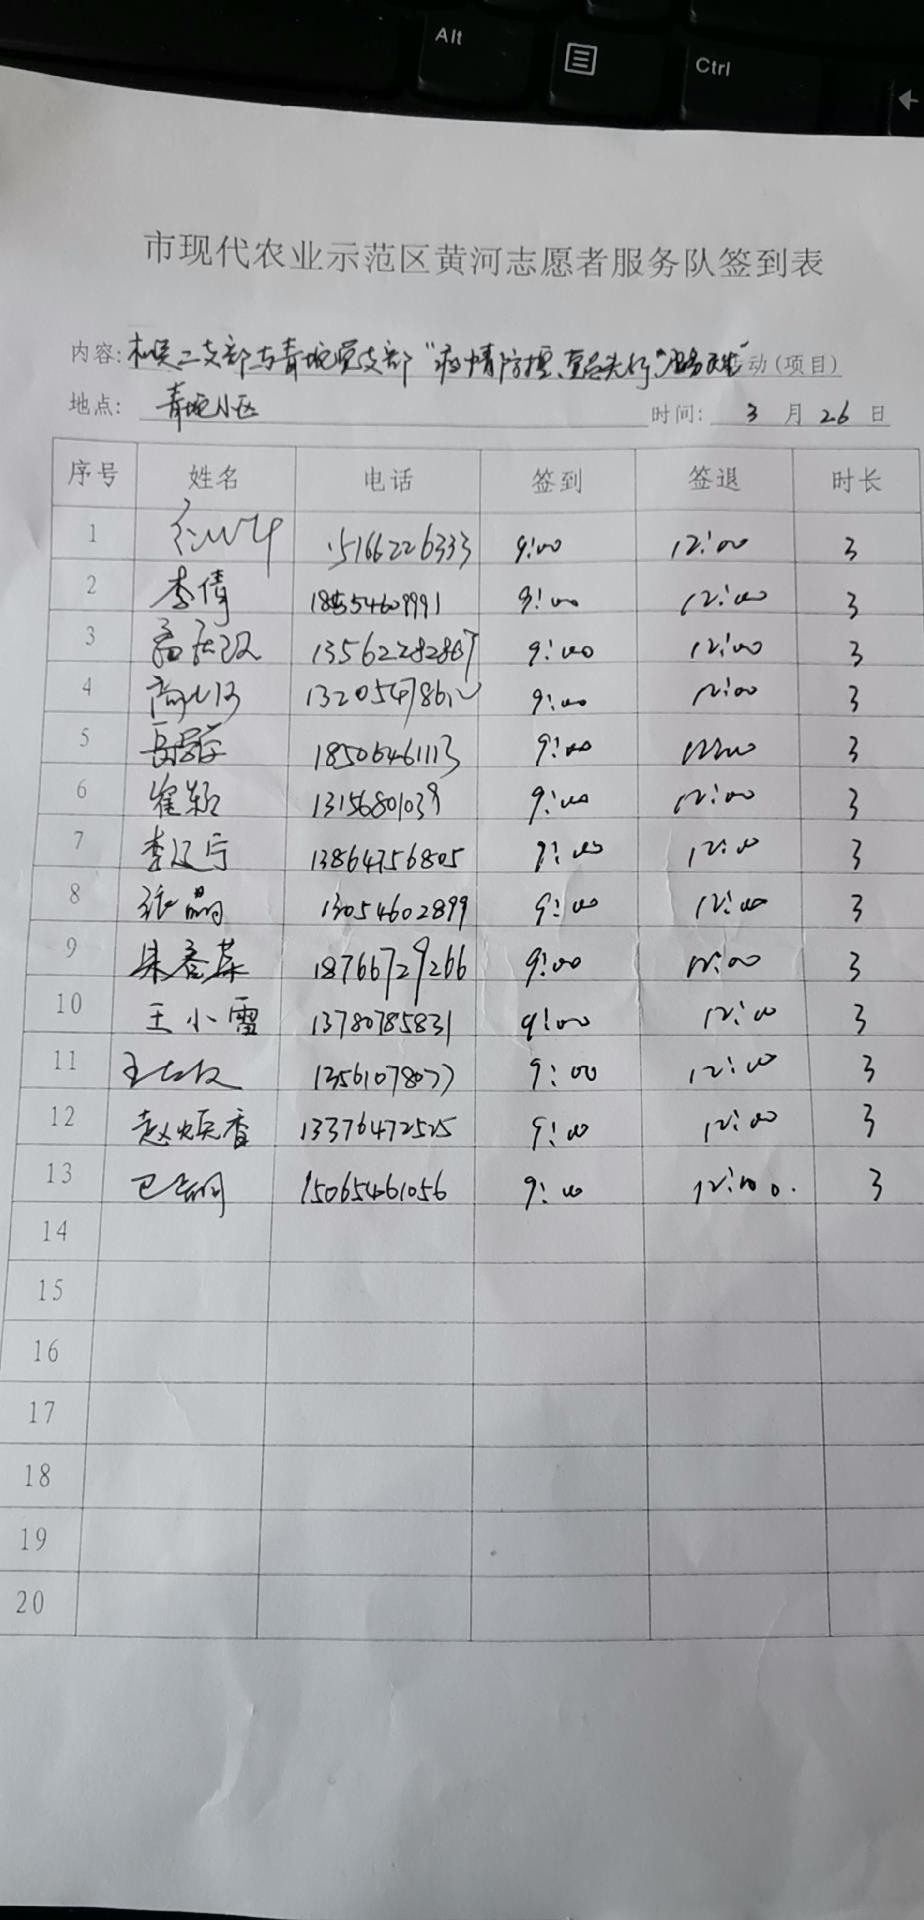 Alt
Ctrl
市现代农业示范区黄河志愿者服务队签到表
内容: 二支部与青坨党支部“疫情防控、党员先行”服务 动(项目)
地点: 青坨小区 时间: 3 月 26 日
序号 姓名 电话 签到 签退 时长
1 15166226333 9:00 12:00 3
2 李倩 9:00 12:00 3
3 13562282867 9:00 12:00 3
4 9:00 12:00 3
5 18506461113 9:00 12:00 3
6 崔颖 13156801039 9:00 12:00 3
7 李辽宁 13864756805 9:00 12:00 3
8 张晶 13054602899 9:00 12:00 3
9 18766729266 9:00 12:00 3
10 王小雪 13780785831 9:00 12:00 3
11 13561078077 9:00 12:00 3
12 赵焕香 13376472525 9:00 12:00 3
13 15065461056 9:00 12:00 3
14
15
16
17
18
19
20